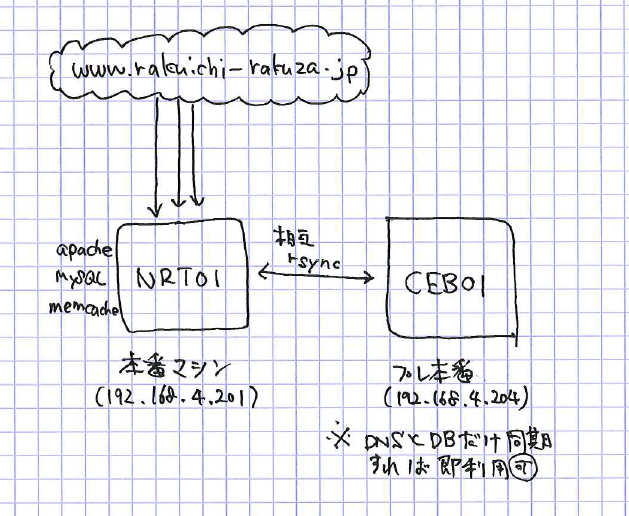 www.rakuichi-rakuza.jp
apache
MySQL
memcache
NRT01
相互
rsync
CEB01
本番マシン
(192.168.4.201)
プレ本番
(192.168.4.204)
※ DNSとDBだけ同期
すれば即利用可